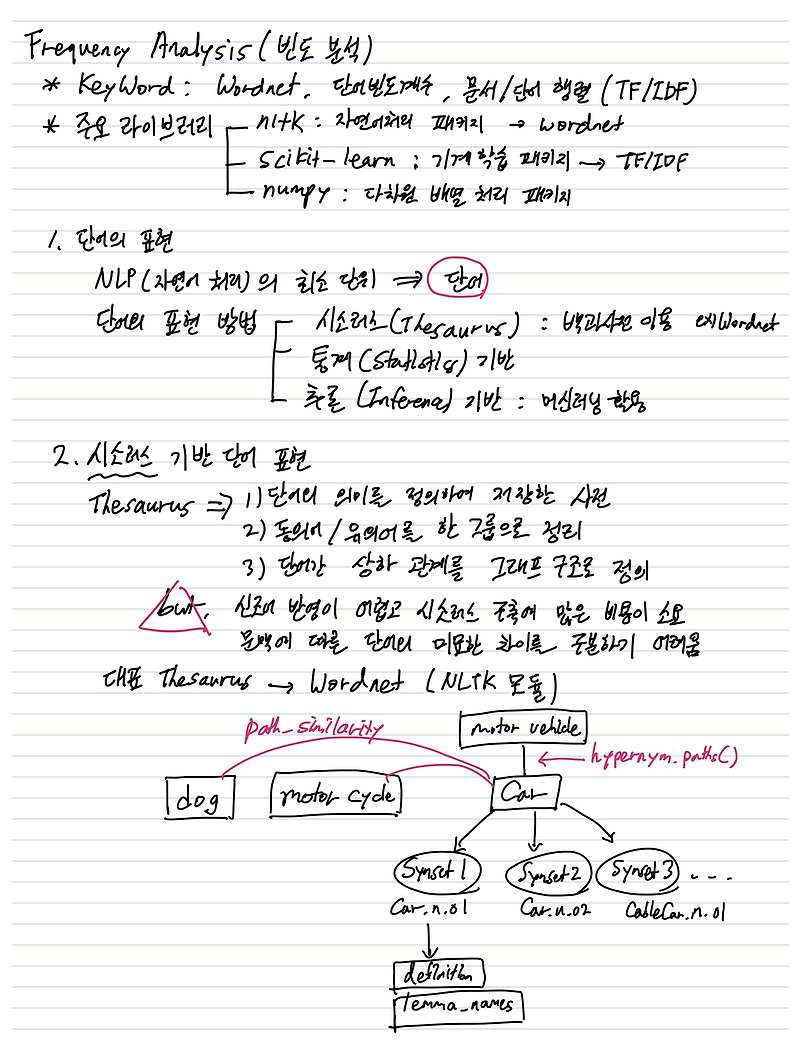 Frequency Analysis (빈도 분석)
* KeyWord : Wordnet, 단어빈도계수, 문서/단어 행렬 (TF/IDF)
* 주요 라이브러리
nltk : 자연어처리 패키지 → wordnet
scikit-learn : 기계학습 패키지 → TF/IDF
numpy : 다차원 배열 처리 패키지
1. 단어의 표현
NLP (자연어 처리)의 최소 단위 ⇒ 단어
단어의 표현 방법
시소러스(Thesaurus) : 백과사전 이용 ex)Wordnet
통계(Statistics) 기반
추론 (Inference) 기반 : 머신러닝 활용
2. 시소러스 기반 단어 표현
Thesaurus ⇒ 1) 단어의 의미를 정의하여 저장한 사전
2) 동의어/유의어를 한 그룹으로 정리
3) 단어간 상하 관계를 그래프 구조로 정의
but, 신조어 반영이 어렵고 시소러스 구축에 많은 비용이 소요
문맥에 따른 단어의 미묘한 차이를 구분하기 어려움
대표 Thesaurus → Wordnet (NLTK 모듈)
path_similarity
motor vehicle
← hypernym.paths()
dog
motor cycle
Car
Synset 1
Synset 2
Synset 3 ...
Car.n.01
Car.n.02
CableCar.n.01
definition
lemma_names